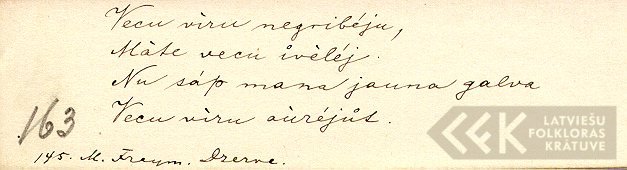 Vecu vìru negribéju,
Màte vecu ìvèléj.
Nu sáp mana jauna galva
Vecu vìru aùréjút.
163
145. M. Freym. Dzerve.
LATVIEŠU
FOLKLORAS
KRĀTUVE